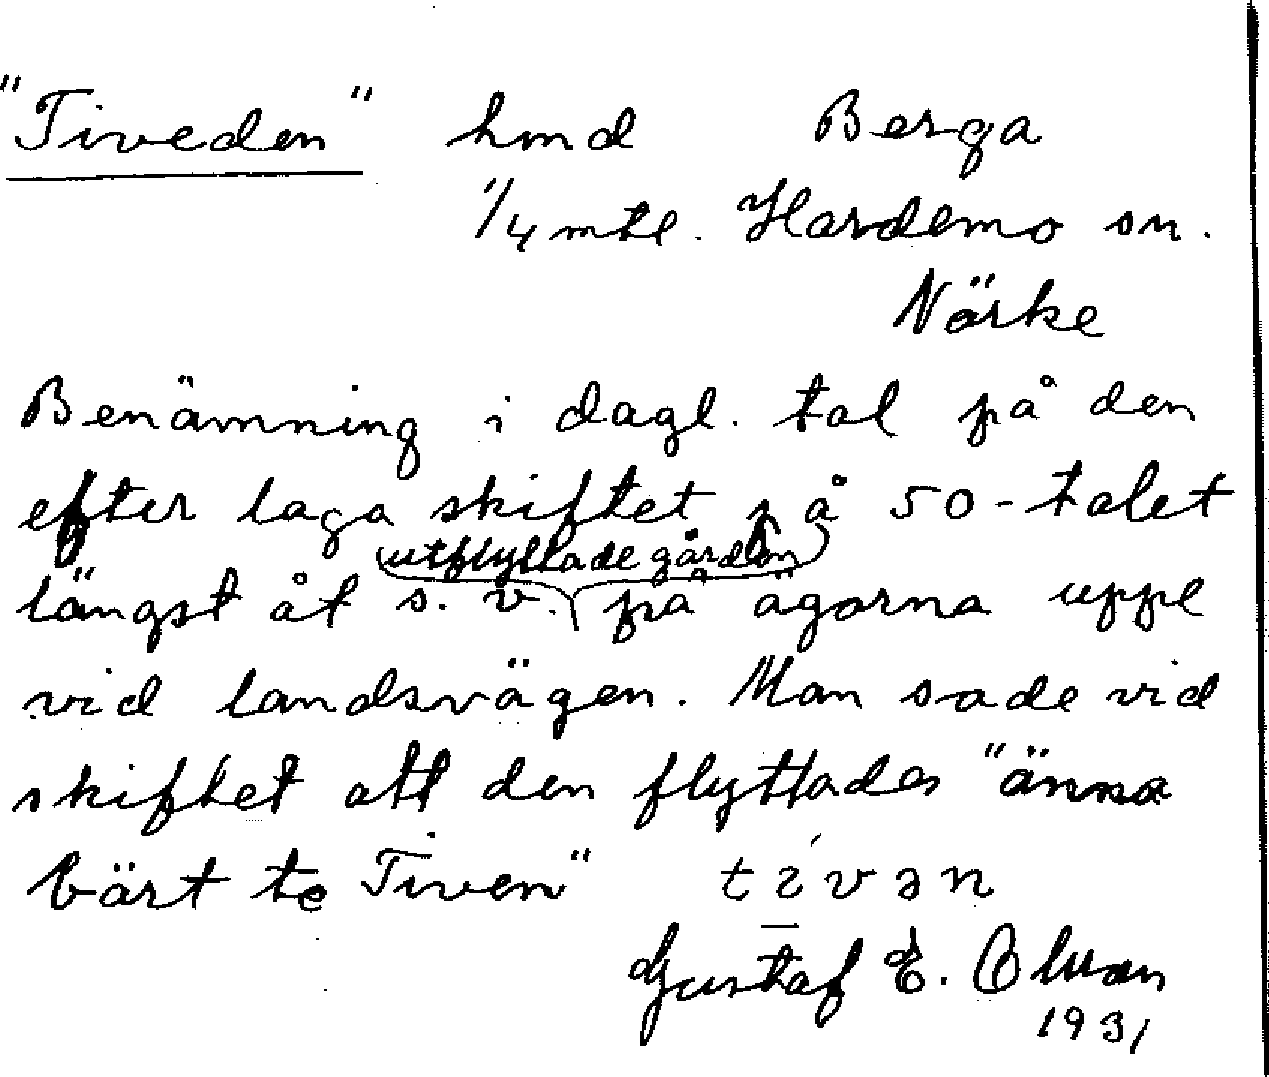 "Tiveden" hmd Berga
1/4 mtl. Hardemo sn.
Närke
Benämning i dagl. tal på den
efter laga skiftet på 50-talet
utflyttade gården
längst åt s. v. på ägorna uppe
vid landsvägen. Man sade vid
skiftet att den flyttades "änna
bärt te Tiven" tivən
Gustaf E.
1931